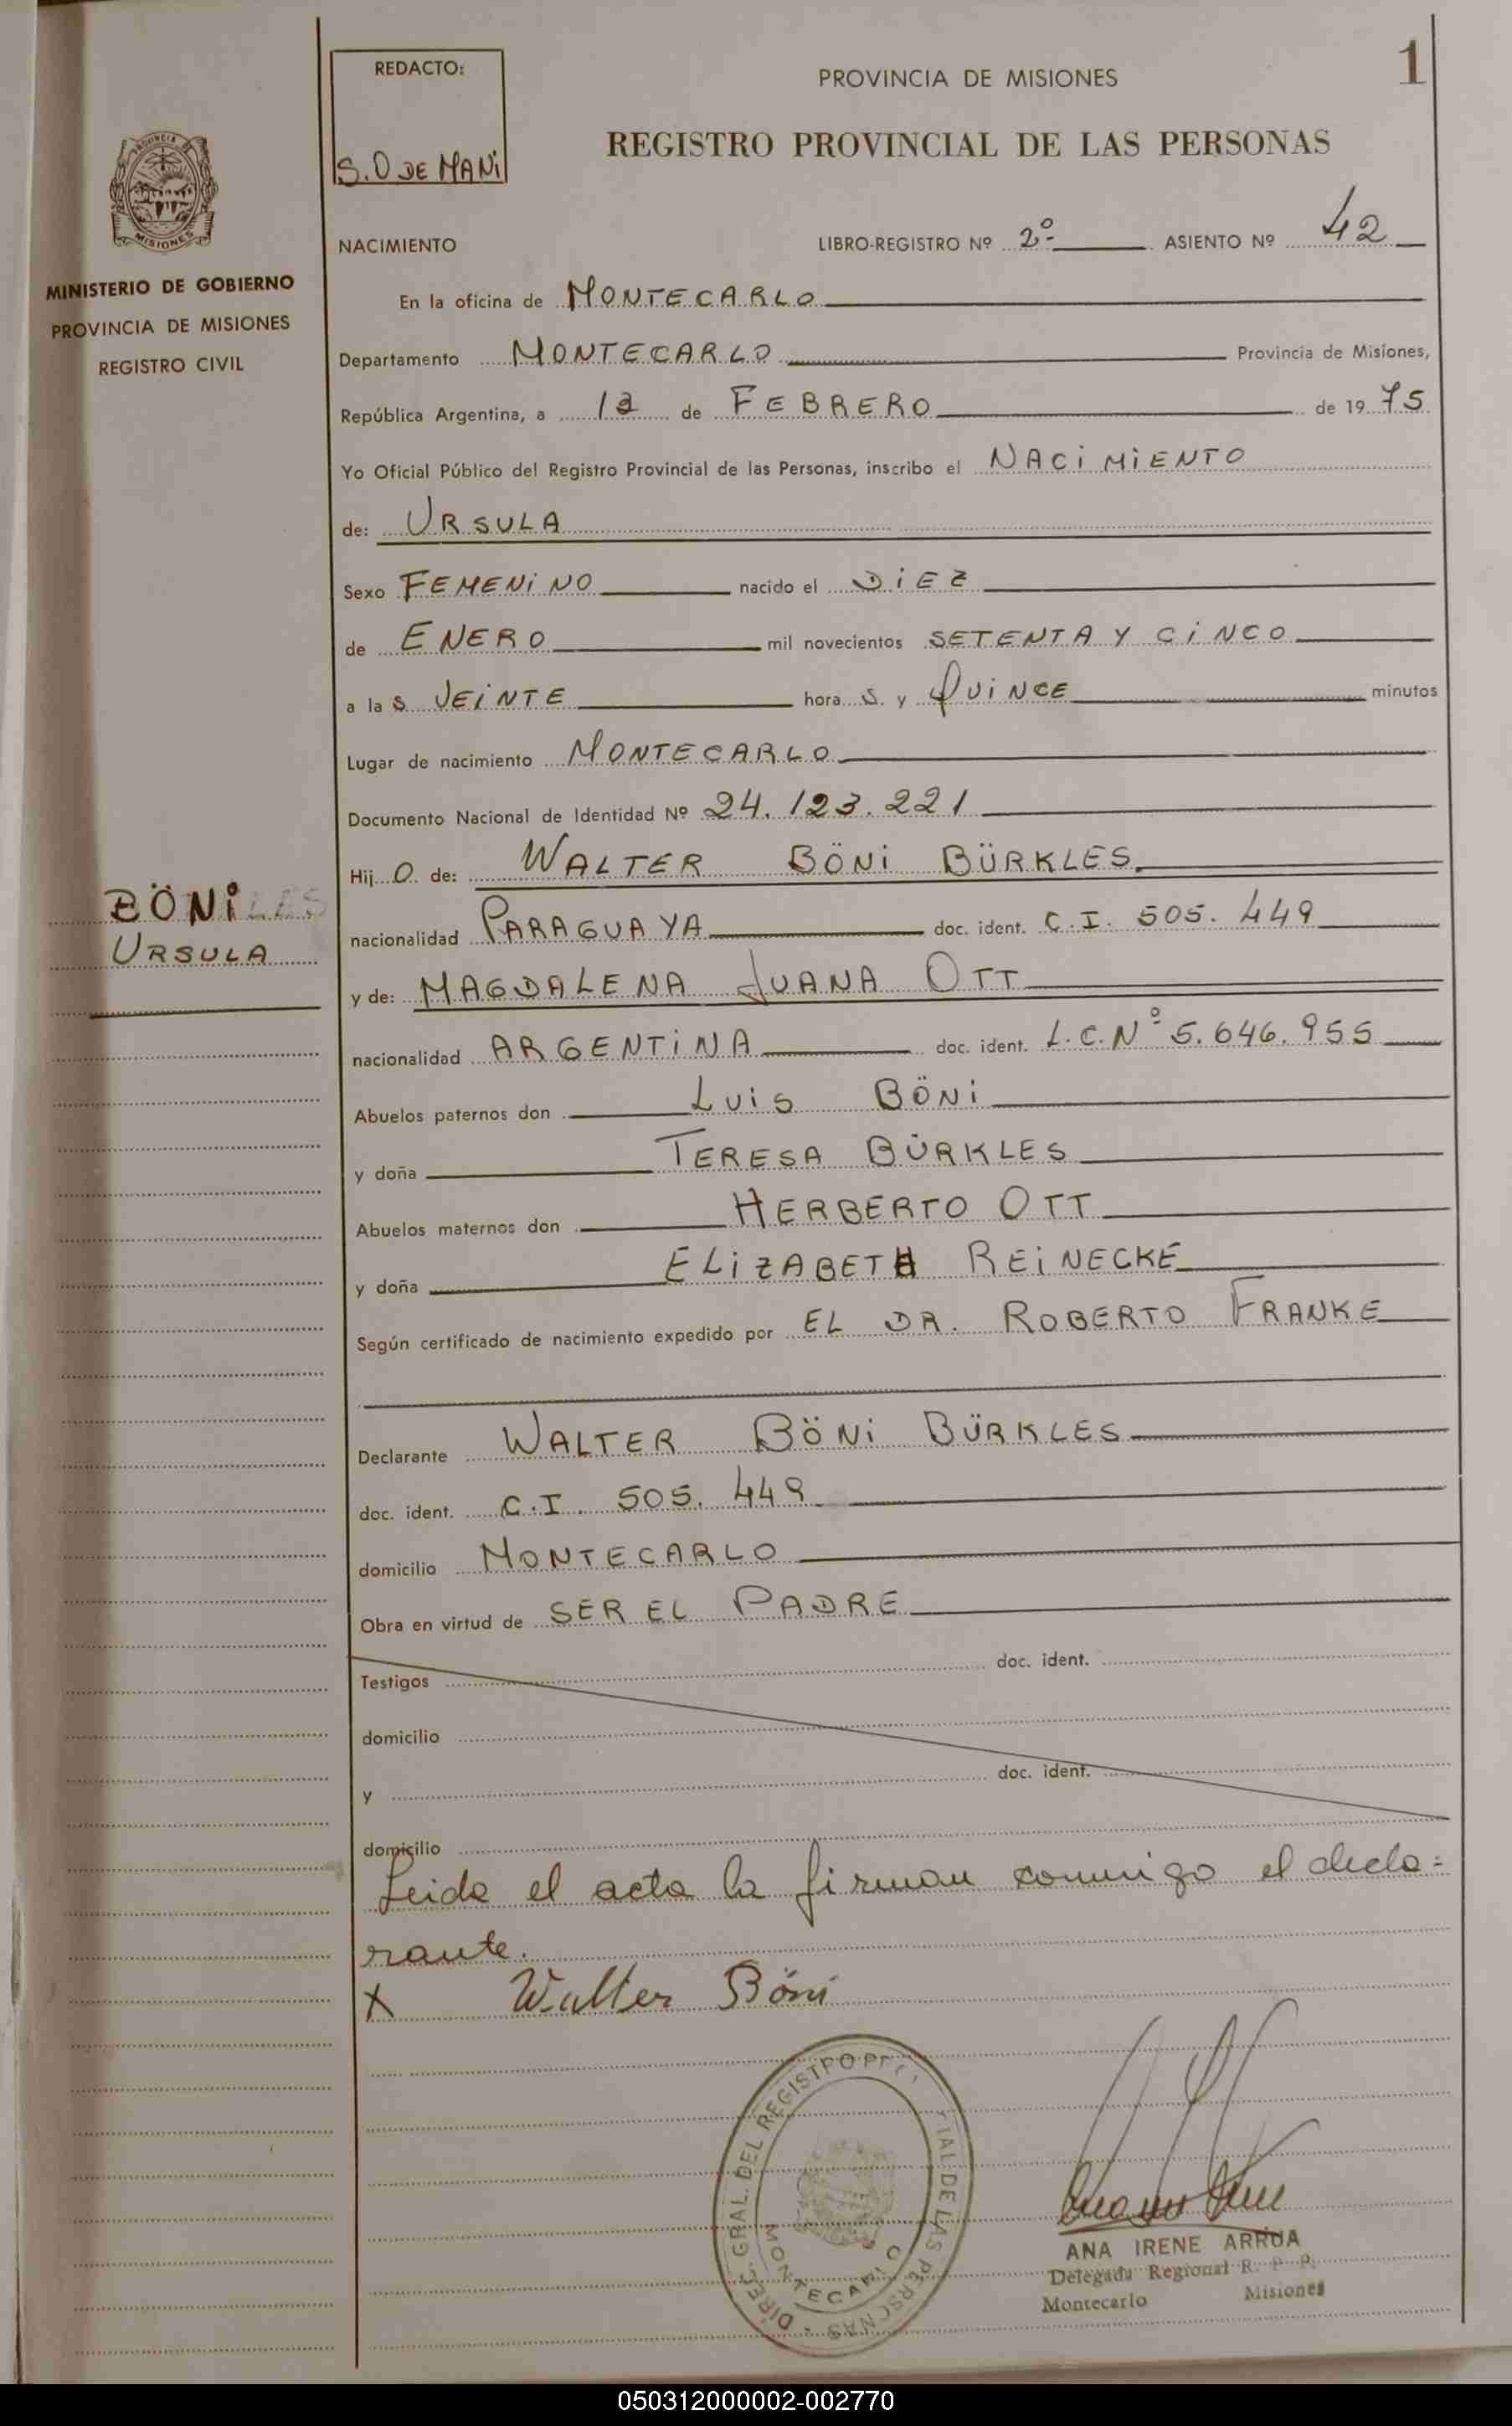 REDACTO:
S.O DE MANi
PROVINCIA DE MISIONES
1
REGISTRO PROVINCIAL DE LAS PERSONAS
PROVINCIA DE
MISIONES
MINISTERIO DE GOBIERNO
PROVINCIA DE MISIONES
REGISTRO CIVIL
NACIMIENTO LIBRO-REGISTRO Nº 2º ASIENTO Nº 42
En la oficina de MONTECARLO
Departamento MONTECARLO Provincia de Misiones,
República Argentina, a de FEBRERO de 1975
Yo Oficial Público del Registro Provincial de las Personas, inscribo el NACiMiENTO
de: URSULA
Sexo FEMENiNO nacido el DiEZ
de ENERO mil novecientos SETENTA Y CiNCO
a las VEiNTE horas y QUiNCE minutos
Lugar de nacimiento MONTECARLO
Documento Nacional de Identidad Nº 24.123.221
HijO de: WALTER BÖNi BÜRKLES
BÖNi
URSULA
nacionalidad PARAGUAYA doc. ident. C.I. 505.449
y de: MAGDALENA JUANA OTT
nacionalidad ARGENTiNA doc. ident. L.C.Nº 5.646.955
Abuelos paternos don LUiS BÖNi
y doña TERESA BÜRKLES
Abuelos maternos don HERBERTO OTT
y doña ELiZABETH REiNECKE
Según certificado de nacimiento expedido por EL DR. ROBERTO FRANKE
Declarante WALTER BÖNi BÜRKLES
doc. ident. C.I. 505.449
domicilio MONTECARLO
Obra en virtud de SER EL PADRE
Testigos doc. ident.
domicilio
y doc. ident.
domicilio
Leida el acta la firman conmigo el decla=
rante.
X Walter Böni
DIREC. GRAL. DEL REGISTRO DE LAS PERSONAS
MONTECARLO
ANA IRENE ARRUA
Delegada Regional R. P. P.
Montecarlo Misiones
050312000002-002770